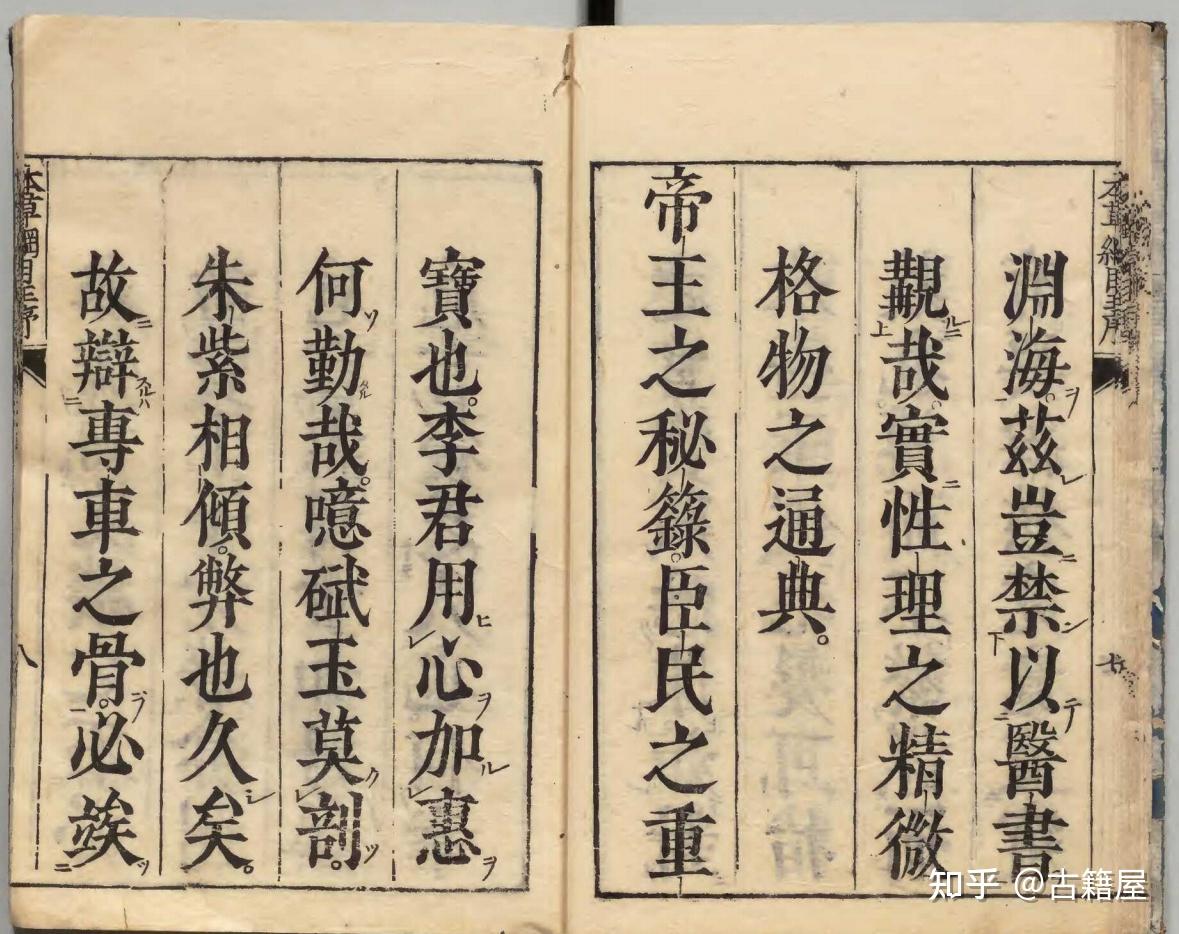 淵海茲豈禁以醫書
覯哉實性理之精微
格物之通典
帝王之秘籙臣民之重
寶也李君用心加惠
何勤哉噫碔玉莫剖
朱紫相傾弊也久矣
故辯專車之骨必竢
本草綱目序
八
知乎 @古籍屋